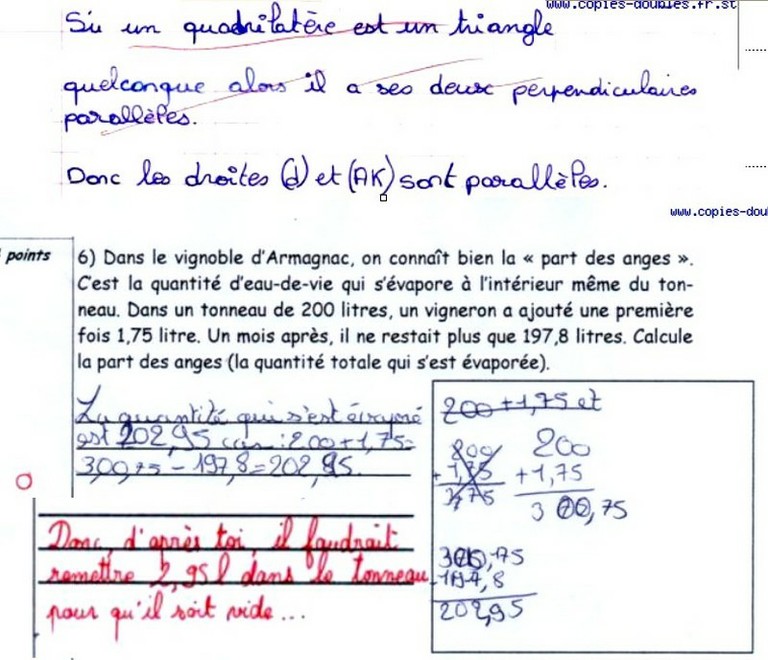 www.copies-doubles.fr.st
Si un quadrilatère est un triangle
quelconque alors il a ses deux perpendiculaires
parallèles.
Donc les droites (d) et (AK) sont parallèles.
www.copies-dou
points
6) Dans le vignoble d'Armagnac, on connaît bien la « part des anges ».
C'est la quantité d'eau-de-vie qui s'évapore à l'intérieur même du ton-
neau. Dans un tonneau de 200 litres, un vigneron a ajouté une première
fois 1,75 litre. Un mois après, il ne restait plus que 197,8 litres. Calcule
la part des anges (la quantité totale qui s'est évaporée).
La quantité qui s'est évaporé
est 202,95 car : 200+1,75=
300,75-197,8=202,95.
0
Donc, d'après toi, il faudrait
remettre 2,95 l dans le tonneau
pour qu'il soit vide...
200+1,75 et
200
+1,75
3 00,75
,75
197,8
202,95